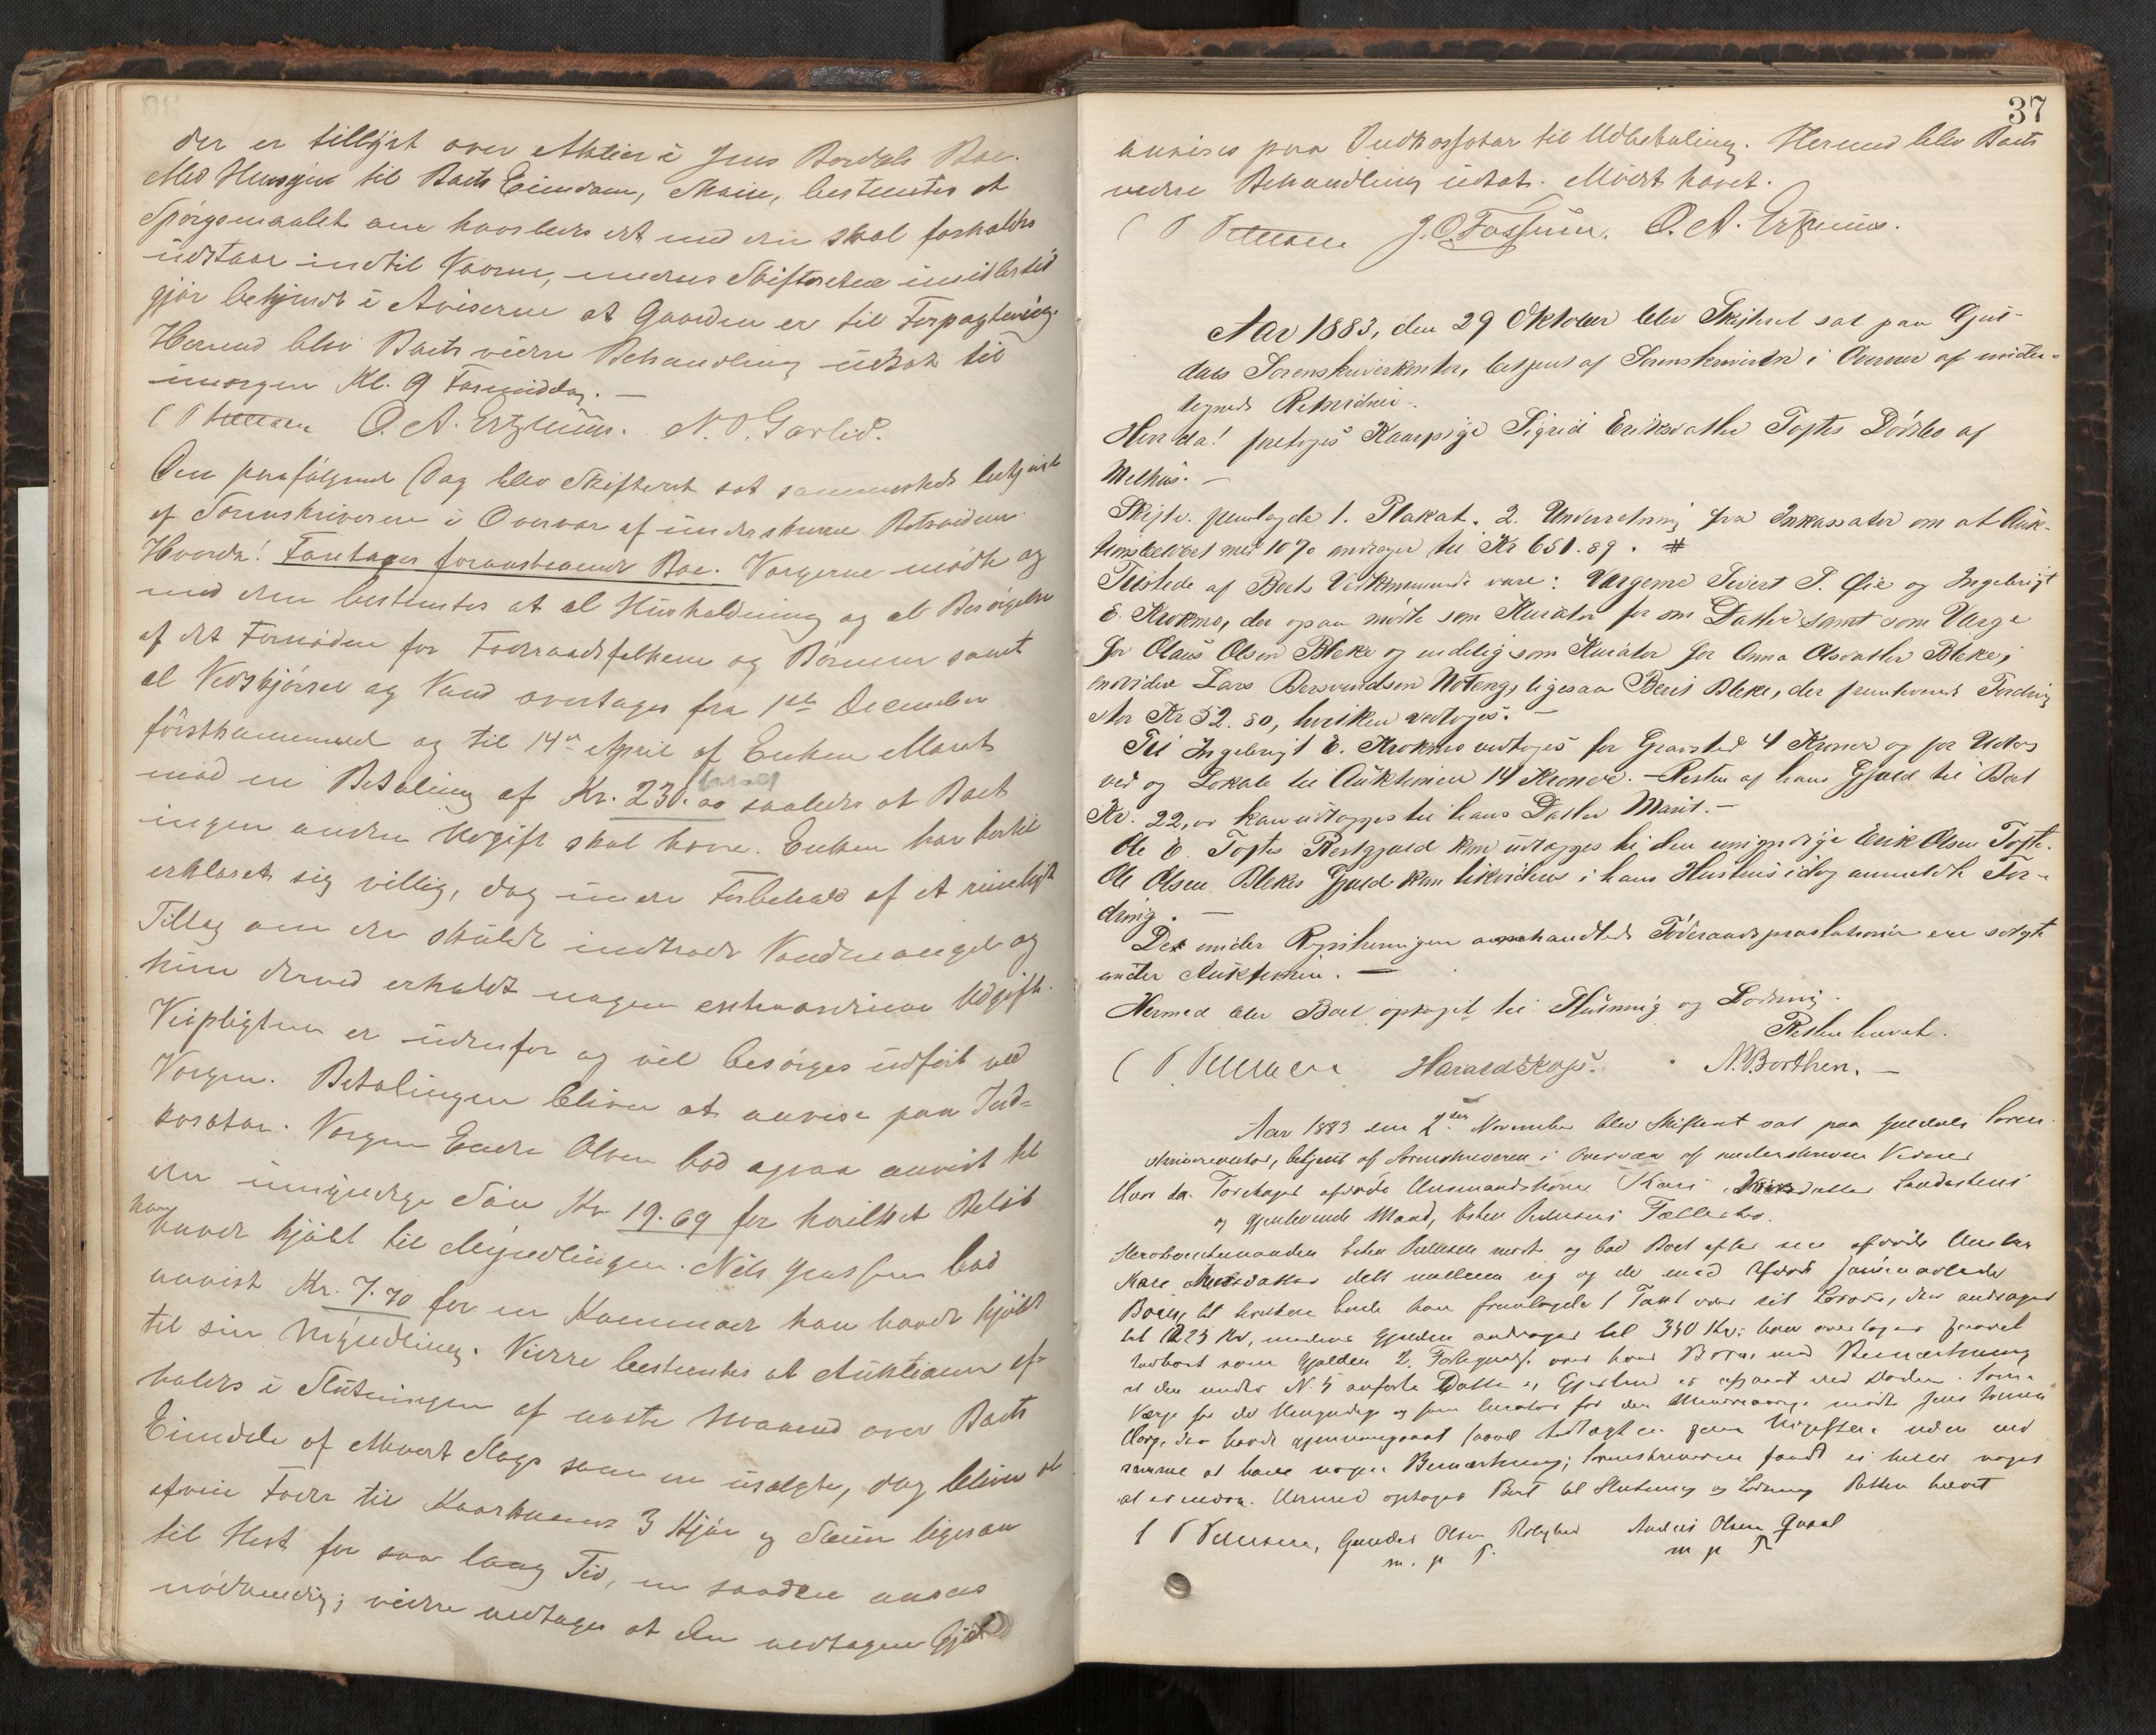 der er tillyst over Aktier i Jens Bordals Boe.
Med Hensyn til Boets Eiendom, Moin, bestemtes at
Spørgsmaalet om hvorledes det med den skal forholdes
udstaar indtil Vaaren, medens Skifteretten imidlertid
gjør bekjendt i Aviserne at Gaarden er til Forpagtning.
Hermed blev Boets videre Behandling udsat til
imorgen Kl. 9 Formiddag. —
O. A. Ertzeiius. N. O. Garlid.
Den paafølgende Dag blev Skifteret sat sammesteds betjent
af Sorenskriveren i Overvær af underskrevne Retsvidner
Hvorda! Foretages foranstaaende Boe. Værgerne mødte og
med dem bestemtes at al Husholdning og al Besørgelse
af det Fornødne for Foderaadsfolkene og Børnene samt
al Vedskjørsel og Vand overtages fra 1ste December
førstkommende og til 14de April af Enken Marit
mod en Betaling af Kr. 230.00 saaledes at Boet
ingen anden Udgift skal have. Enken har hertil
erklæret sig villig, dog under Forbehold af et rimeligt
Tillæg om der skulde indtræde Vandmangel og
hun derved erholdt nogen extraordinær Udgift.
Veipligten er udenfor og vil besørges udført ved
Værgen. Betalingen bliver at anvise paa Ind-
kasator. Værgen Endre Olsen bad ogsaa anvist til
den umyndige Søn Kr. 19.69 for hvilket Beløb
han havde kjøbt til Myndlingen. Nils Jenssen bad
anvist Kr. 7.70 for en Kommode han havde kjøbt
til sin Myndling. Videre bestemtes at Auktionen af-
holdes i Slutningen af næste Maaned over Boets
Eiendele af ethvert Slags som er usolgte, dog bliver at
afveie Foder til Kaarkonens 3 Kjør og Smaa ligesaa
til Hest for saa lang Tid, en saadan ansees
nødvendig; videre vedtages at den vedtagne Gjæld
37
anvises paa Indkassator til Udbetaling. Hermed blev Boets
videre Behandling udsat. Mødet hævet.
J. O. Fossum. O. A. Ertzeiius.
Aar 1883, den 29 Oktober blev Skifteret sat paa Gul-
dals Sorenskriverkontor, betjent af Sorenskriveren i Overvær af under-
tegnede Retsvidner.
Hvorda! foretoges Kaarpige Sigrid Eriksdatter Toftes Dødsbo af
Melhus. —
Skifter. fremlagde 1. Plakat. 2. Underretning fra Inkassator om at Auk-
tionsbeløbet med 10% andrager til Kr 651.89. #
Tilstede af Boets Vedkommende vare: Værgerne Sivert S. Øie og Ingebrigt
E. Krokmo, der ogsaa mødte som Kurator for sin Datter samt som Værge
for Olaus Olsen Bleke og endelig som Kurator for Anna Olsdatter Bleke;
endvidere Lars Bersvendsen Noteng, ligesaa Berit Bleke, der fremkom Fordring
stor Kr 52.80, hvilken vedtoges. —
Til Ingebrigt E. Krokmo vedtoges for Gravsted 4 Kroner og for Udlæg
ved og Lokale til Auktionen 14 Kroner. — Resten af hans Gjæld til Boet
Kr. 22,00 kan udlægges til hans Datter Marit. —
Ole E. Toftes Restgjæld kan udlægges til den umyndige Erik Olsen Tofte.
Ole Olsen Blekes Gjæld kan likvideres i hans Hustrus idag anmeldte For-
dring. —
De under Registeringen omhandlede Føderaadspræstationer ere solgte
under Auktionen. —
Hermed blev Boet optaget til Slutning og Lodning.
Retten hævet.
Harald Skogs. N. Borthen. —
Aar 1883 den 2den November blev Skifteret sat paa Guldals Soren-
skriverkontor, betjent af Sorenskriveren i Overvær af underskrevne Vidner
Hvor da. Foretaget afdøde Husmandskone Kari Landsteni
og gjenlevende Mand, Esten Pedersens Fællesbo.
Esten Pedersen mødte og bad Boet efter sin afdøde
Kari delt mellem sig og de med Afdøde sammenavlede
Børn, til hvilken Ende han fremlagde 1 Taxt over sit Løsøre, der andrager
til 223 Kr, medens Gjælden andrager til 340 Kr; han overtager saavel
Indboet som Gjælden 2. Fortegnelse over hans Børn med Bemærkning
at den under N. 5 anførte Datter er afgaaet ved Døden. Som
Værge for de Umyndige og som Curator for den Mindreaarige mødte Jens
der havde gjennemgaaet saavel Indtægten som Udgiften uden ved
samme at have nogen Bemærkning; Sorenskriveren fandt ei heller noget
at erindre. Hermed optoges Boet til Slutning og Lodning Retten hævet
Gunder Olsen Anders Olsen Qvaal
m. p. P. m p P